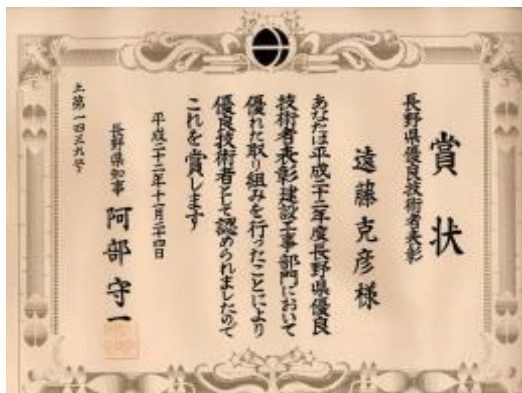 賞状
長野県優良技術者表彰
遠藤克彦様
あなたは平成二十二年度長野県優良
技術者表彰建設工事部門において
優れた取り組みを行ったことにより
優良技術者として認められましたので
これを賞します
平成二十二年十一月二十四日
長野県知事 阿部守一